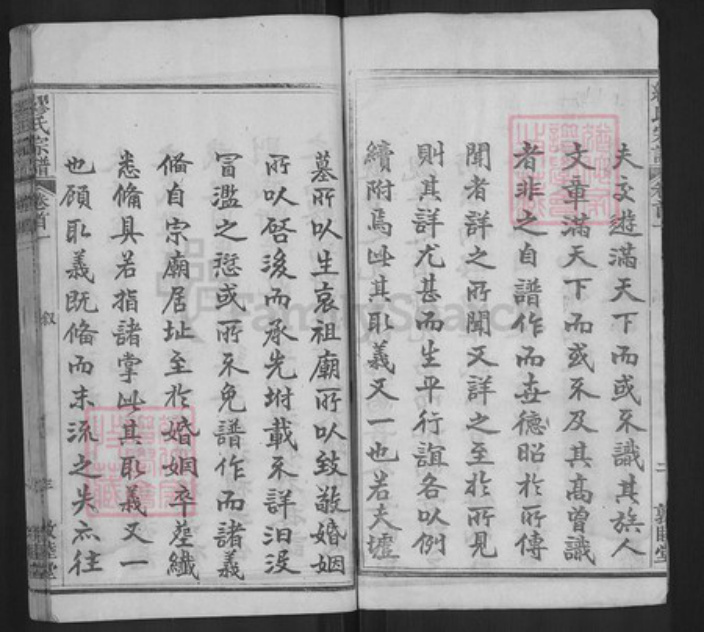 夫交遊滿天下而或不識其族人
文章滿天下而或不及其高曾識
者非之自譜作而世德昭於所傳
聞者詳之所聞又詳之至於所見
則其詳尤甚而生平行誼各以例
續附焉此其取義又一也若夫墟
墓所以生哀祖廟所以致敬婚姻
所以啓後而承先坿載不詳汨没
冒濫之愆或所不免譜作而諸義
偹自宗廟居址至於婚姻卒塟纖
悉偹具若指諸掌此其取義又一
也顧取義既偹而末流之失亦往
繆氏宗譜
卷首一
叙
三
敦睦堂
繆氏宗譜
卷首一
二
敦睦堂
FamilySearch